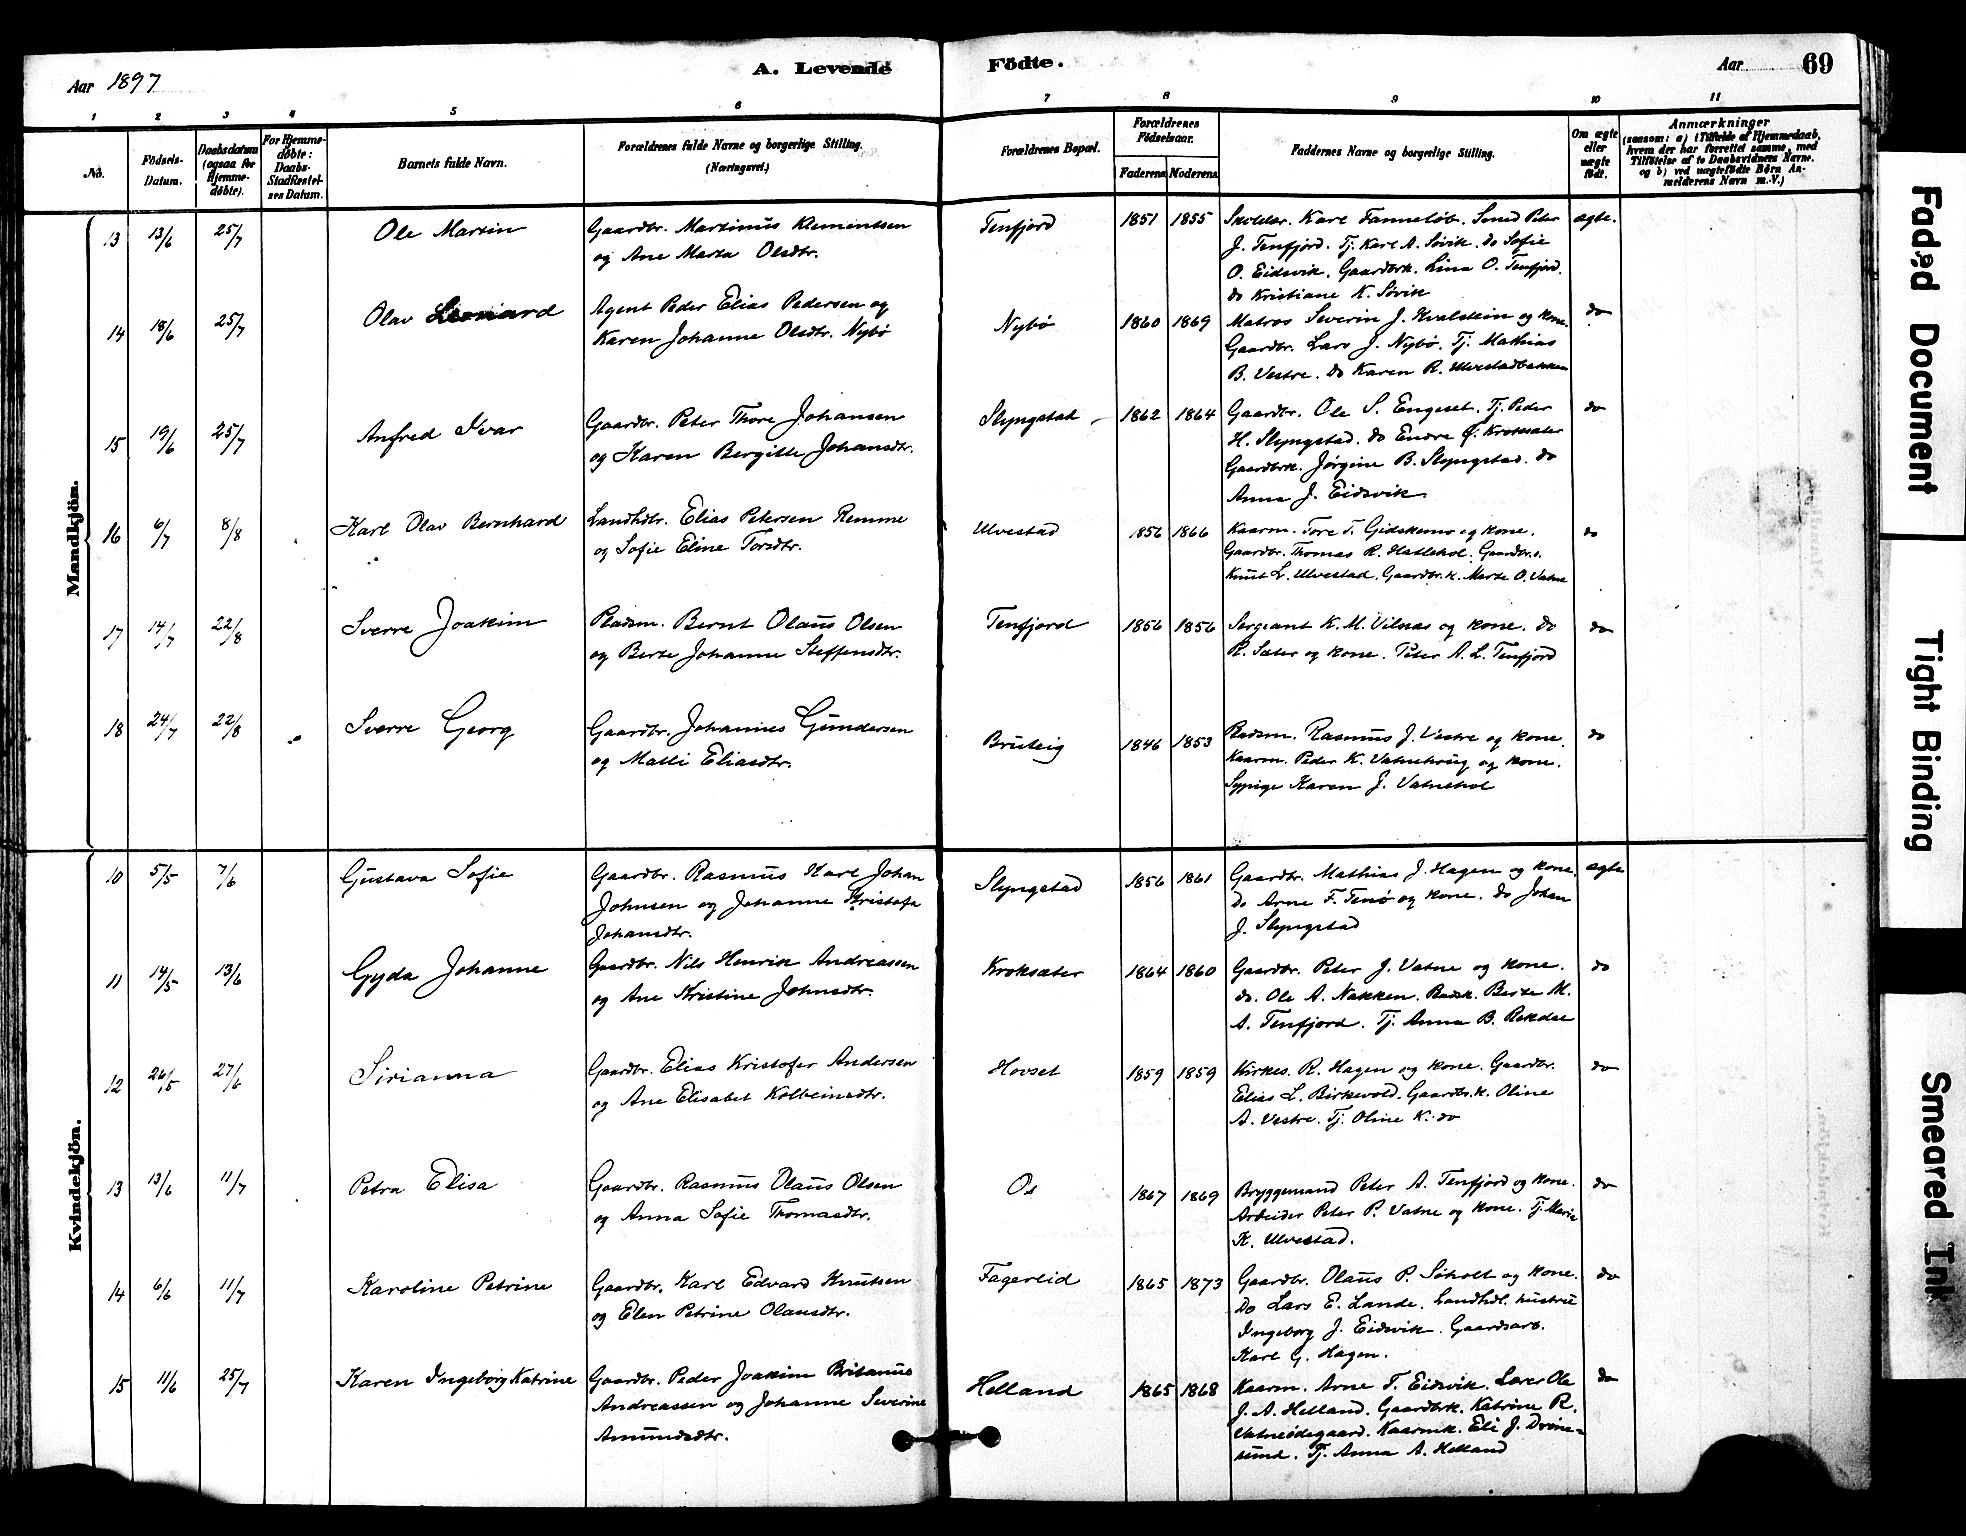 Aar 1897 A. Levende Födte. Aar 69
1 2 3 4 5 6 7 8 9 10 11
No.
Födsels-Datum.
Daabsdatum (ogsaa for Hjemme-döbte).
For Hjemme-döbte: Daabs-Stadfæstel-ses Datum.
Barnets fulde Navn.
Forældrenes fulde Navne og borgerlige Stilling. (Næringsvei.)
Forældrenes Bopæl.
Forældrenes Födselsaar.
Faderens Moderens
Faddernes Navne og borgerlige Stilling.
Om ægte eller uægte födt.
Anmærkninger
(saasom: a) i Tilfælde af Hjemmedaab,
hvem der har forrettet samme, med
Tilföielse af to Daabsvidners Navne.
og b) ved uægtefödte Börn An-
melderens Navn m. V.)
Mandkjön.
13 13/6 25/7 Ole Martin
Gaardbr. Martinus Klementsen
og Ane Marta Olsdtr.
Tenfjord 1851 1855
Karl Fannelöb. Smed Peter
J. Tenfjord. Tj. Karl A. Søvik. do Sofie
O. Eidsvik. Gaardbrk. Lina O. Tenfjord.
do Kristiane K. Søvik
ægte.
14 18/6 25/7 Olav Leonard
Agent Peder Elias Pedersen og
Karen Johanne Olsdtr. Nybø
Nybø 1860 1869
Matros Severin J. Kvalstein og kone.
Gaardbr. Lars J. Nybø. Tj. Mathias
B. Vestre. do Karen R. Ulvestadbakken
do
15 19/6 25/7 Anfred Ivar
Gaardbr. Peter Thore Johansen
og Karen Bergitte Johansdtr.
Slyngstad 1862 1864
Gaardbr. Ole S. Engeset. Tj. Peder
H. Slyngstad. do Endre Kroksæter
Gaardbrk. Jørgine B. Slyngstad. do
Anna J. Eidsvik
do
16 6/7 8/8 Karl Olav Bernhard
Landhdlr. Elias Petersen Remme
og Sofie Eline Torsdtr.
Ulvestad 1856 1866
Kaarm. Tore T. Gidskemo og kone.
Gaardbr. Thomas R. Hatlehol. Gaardbr.s.
Knut L. Ulvestad. Gaardbr.k. Marte O. Vatne
do
17 14/7 22/8 Sverre Joakim
Pladsm. Bernt Olaus Olsen
og Berte Johanne Steffensdtr.
Tenfjord 1856 1856
Sergeant K. M. Vilnæs og kone. do
R. Sæter og kone. Peter A. L. Tenfjord
do
18 24/7 22/8 Sverre Georg
Gaardbr. Johannes Gundersen
og Malli Eliasdtr.
Bruteig 1846 1853
Rasmus J. Vestre og kone.
Kaarm. Peder K. Vatnehaug og kone.
Sypige Karen J. Vatnehol
do
Kvindekjön.
10 5/5 7/6 Gustava Sofie
Gaardbr. Rasmus Karl Johan
Johnsen og Johanne Kristofa
Johansdtr.
Slyngstad 1856 1861
Gaardbr. Mathias J. Hagen og kone.
do Arne F. Tenø og kone. do Johan
J. Slyngstad
ægte
11 14/5 13/6 Gyda Johanne
Gaardbr. Nils Henrik Andreassen
og Ane Kristine Johnsdtr.
Kroksæter 1864 1860
Gaardbr. Peter J. Vatne og kone.
do. Ole A. Nakken. Berte M.
A. Tenfjord. Tj. Anna B. Rekdal
do
12 26/5 27/6 Sirianna
Gaardbr. Elias Kristofer Andersen
og Ane Elisabet Kolbeinsdtr.
Hovset 1859 1859
Kirkes. R. Hagen og kone. Gaardbr.
Elias L. Birkevold. Gaardbr.k. Oline
A. Vestre. Tj. Oline K. do
do
13 13/6 11/7 Petra Elisa
Gaardbr. Rasmus Olaus Olsen
og Anna Sofie Thomasdtr.
Os 1867 1869
Bryggemand Peter A. Tenfjord og kone.
Arbeider Peter P. Vatne og kone. Tj. Marie
K. Ulvestad.
do
14 6/6 11/7 Karoline Petrine
Gaardbr. Karl Edvard Knutsen
og Elen Petrine Olausdtr.
Fagerlid 1865 1873
Gaardbr. Olaus P. Søholt og kone.
Do Lars E. Lande. Landhdl. hustru
Ingeborg J. Eidsvik. Gaardsarb.
Karl G. Hagen.
do
15 11/6 25/7 Karen Ingeborg Katrine
Gaardbr. Peder Joakim Britanus
Andreassen og Johanne Severine
Amundsdtr.
Helland 1865 1868
Kaarm. Arne T. Eidsvik. Lærer Ole
J. A. Helland. Gaardbrk. Katrine R.
Vatneødegaard. Kaarmk. Eli J. Drøne-
sund. Tj. Anna A. Helland
do
Faded Document
Tight Binding
Smeared Ink